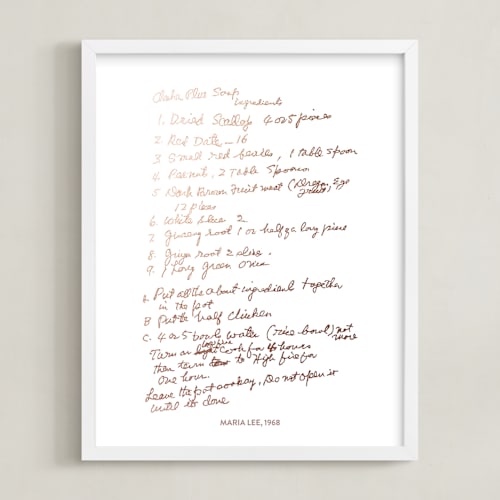 Plus Soup
Ingredients
1. Dried Scallop 4 or 5 pieces
2. Red Date - 16
3. Small red beades, 1 table spoon
4. Peanut, 2 Table Spoons
5 Dark Brown Fruit meat (Dragon Eye
fruits)
12 pices
6. White 2
7 root 1 or half a long pine
8. root 2 slice.
9. 1 Long green Onion
A. Put all the about ingredient together
in the pot
B Put the half chicken
C. 4 or 5 bowls Water (rice bowl) not
more
Turn on low fire cook for 4 hours
then turn to High fire for
One hour.
Leave the pot, Do not open it
until it's done
MARIA LEE, 1968